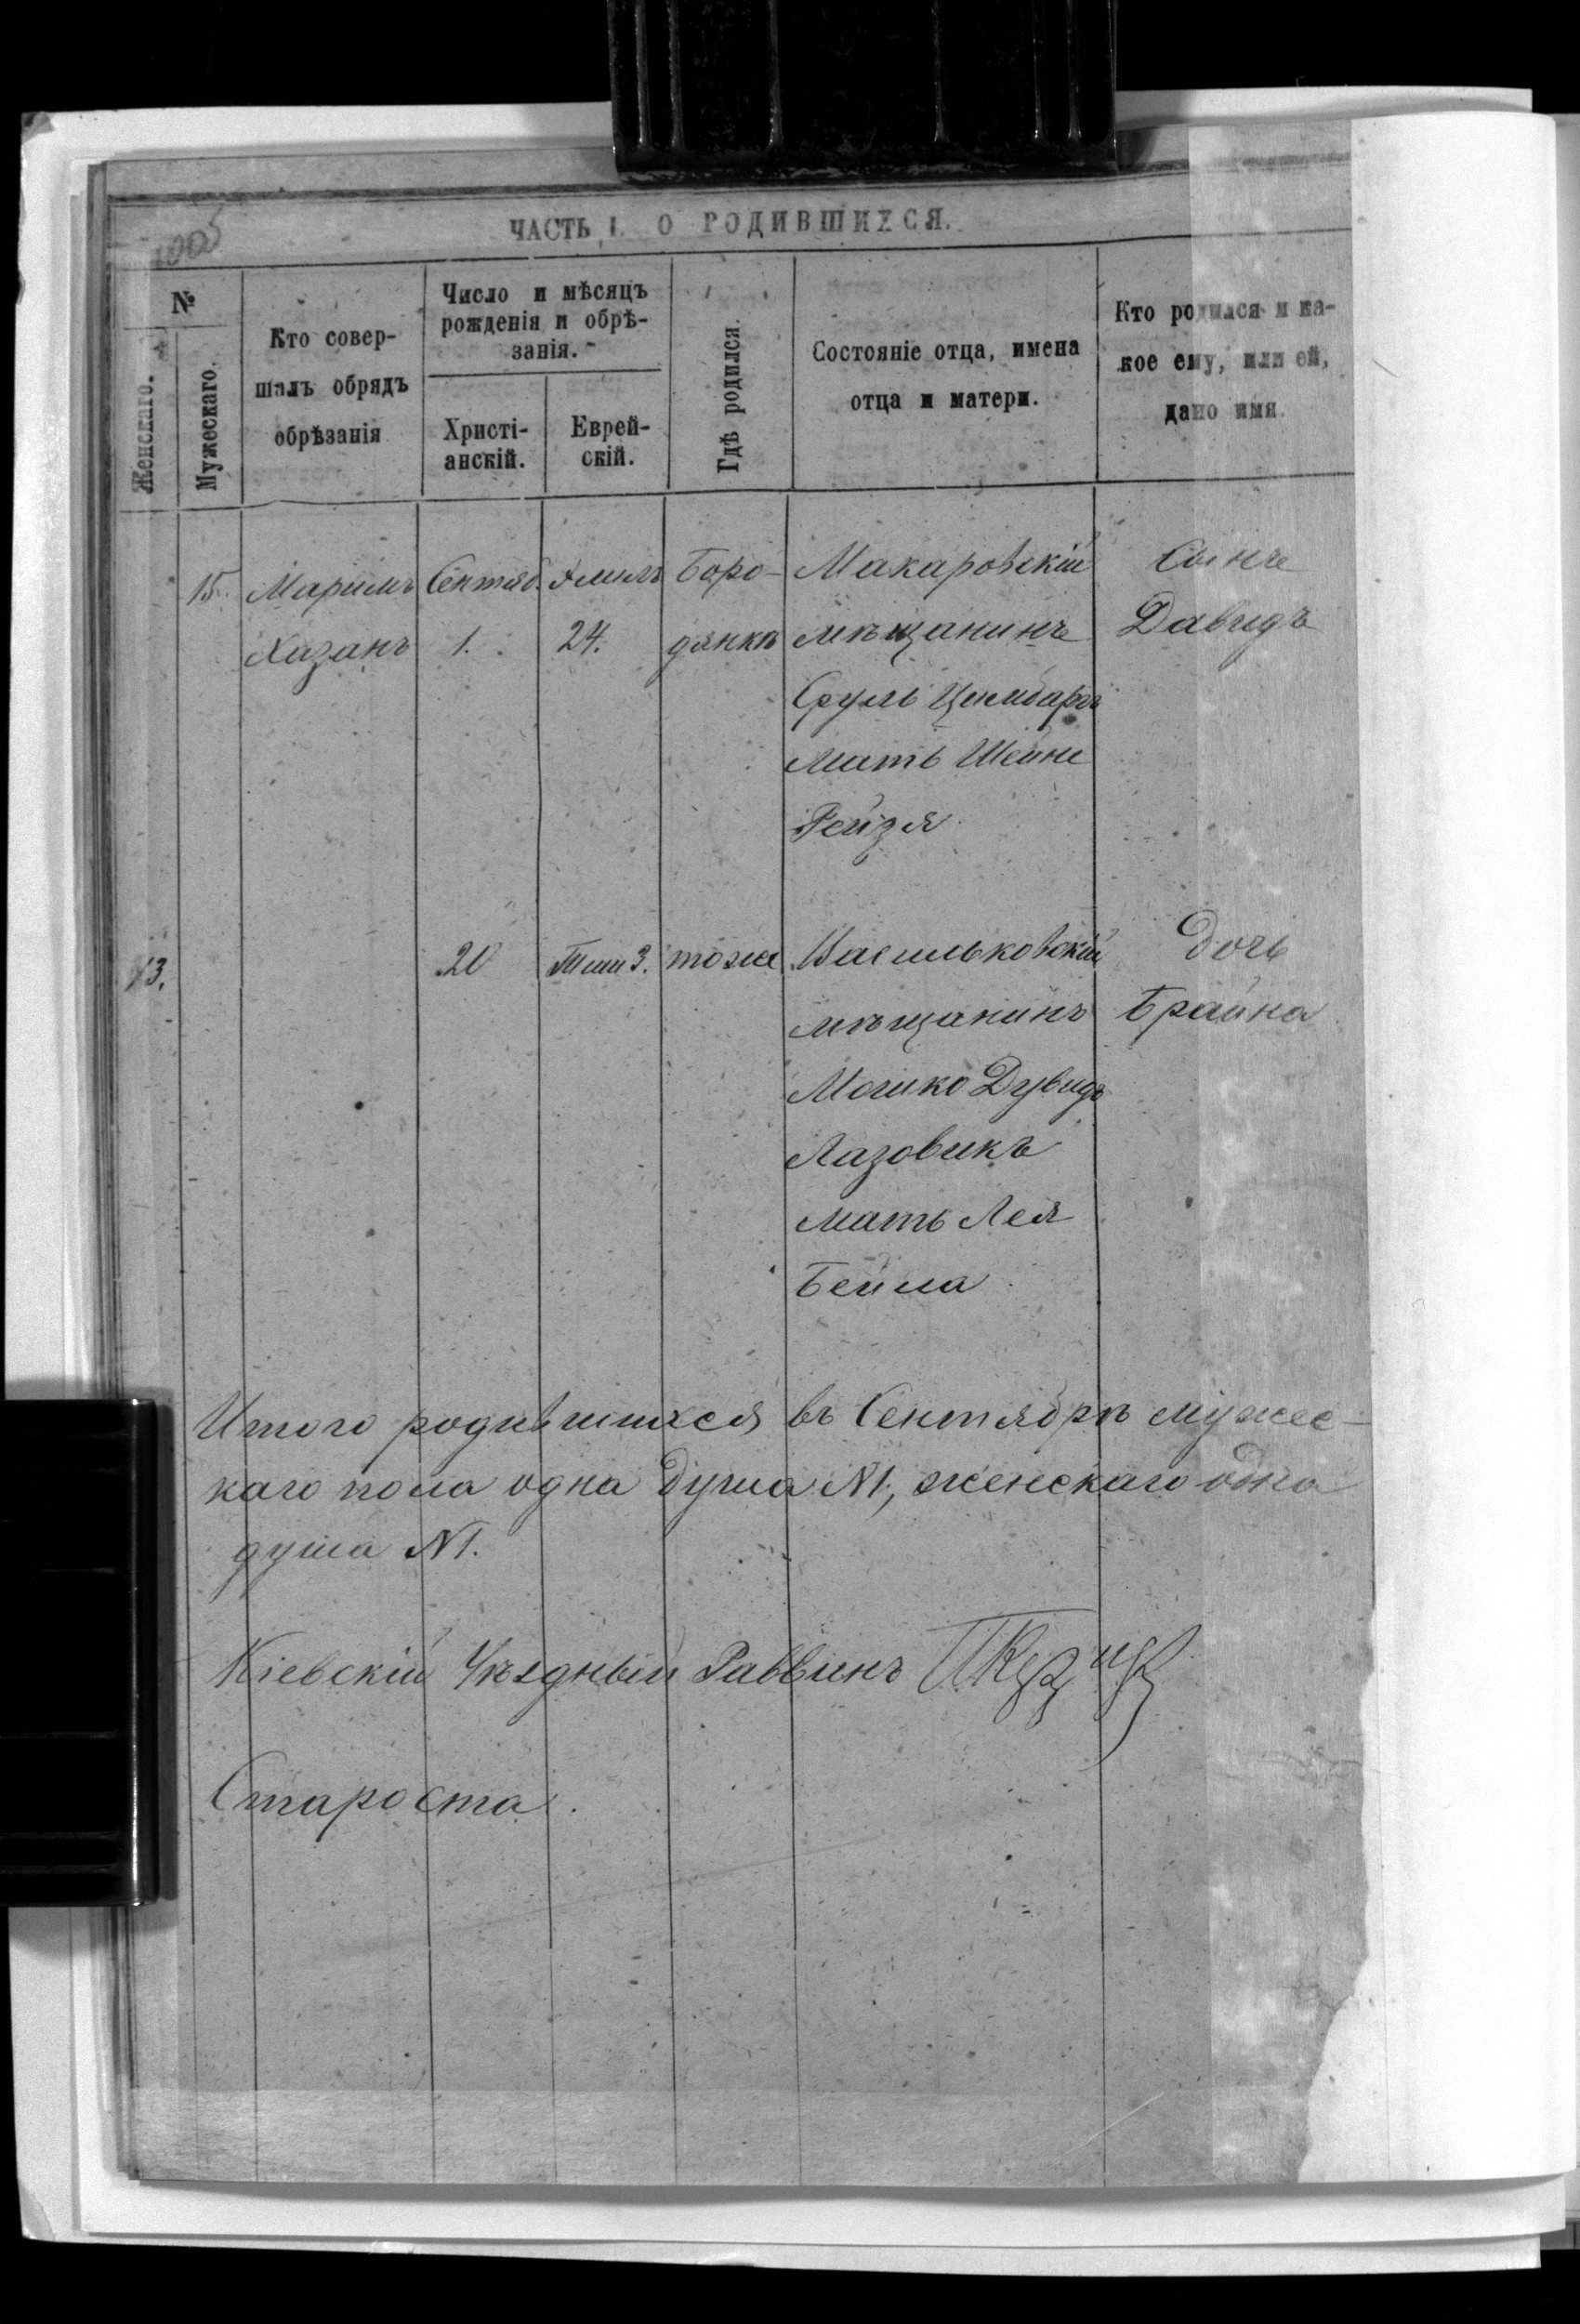 1005
ЧАСТЬ I. О РОДИВШИХСЯ.
№
Женскаго.
Мужескаго.
Кто совер-
шалъ обрядъ
обрѣзанія
Число и мѣсяцъ
рожденія и обрѣ-
занія.
Христі-
анскій.
Еврей-
скій.
Гдѣ родился.
Состояніе отца, имена
отца и матери.
Кто родился и ка-
кое ему, или ей,
дано имя.
15. Маримъ Сентяб. Боро- Макаровскій Сынъ
Хазанъ 1. 24. дянкѣ мѣщанинъ Давидъ
Сруль Цимбаръ
Мать Шейне
Рейзя
13. 20 Тиш 3. тоже Васильковскій Дочь
мѣщанинъ Брайна
Мошко Дувидъ
Лазовикъ
мать Лея
Бейла
Итого родившихся въ Сентябрѣ мужес-
каго пола одна душа №1, женскаго одна
душа №1.
Кіевскій Уѣздный Раввинъ
Староста